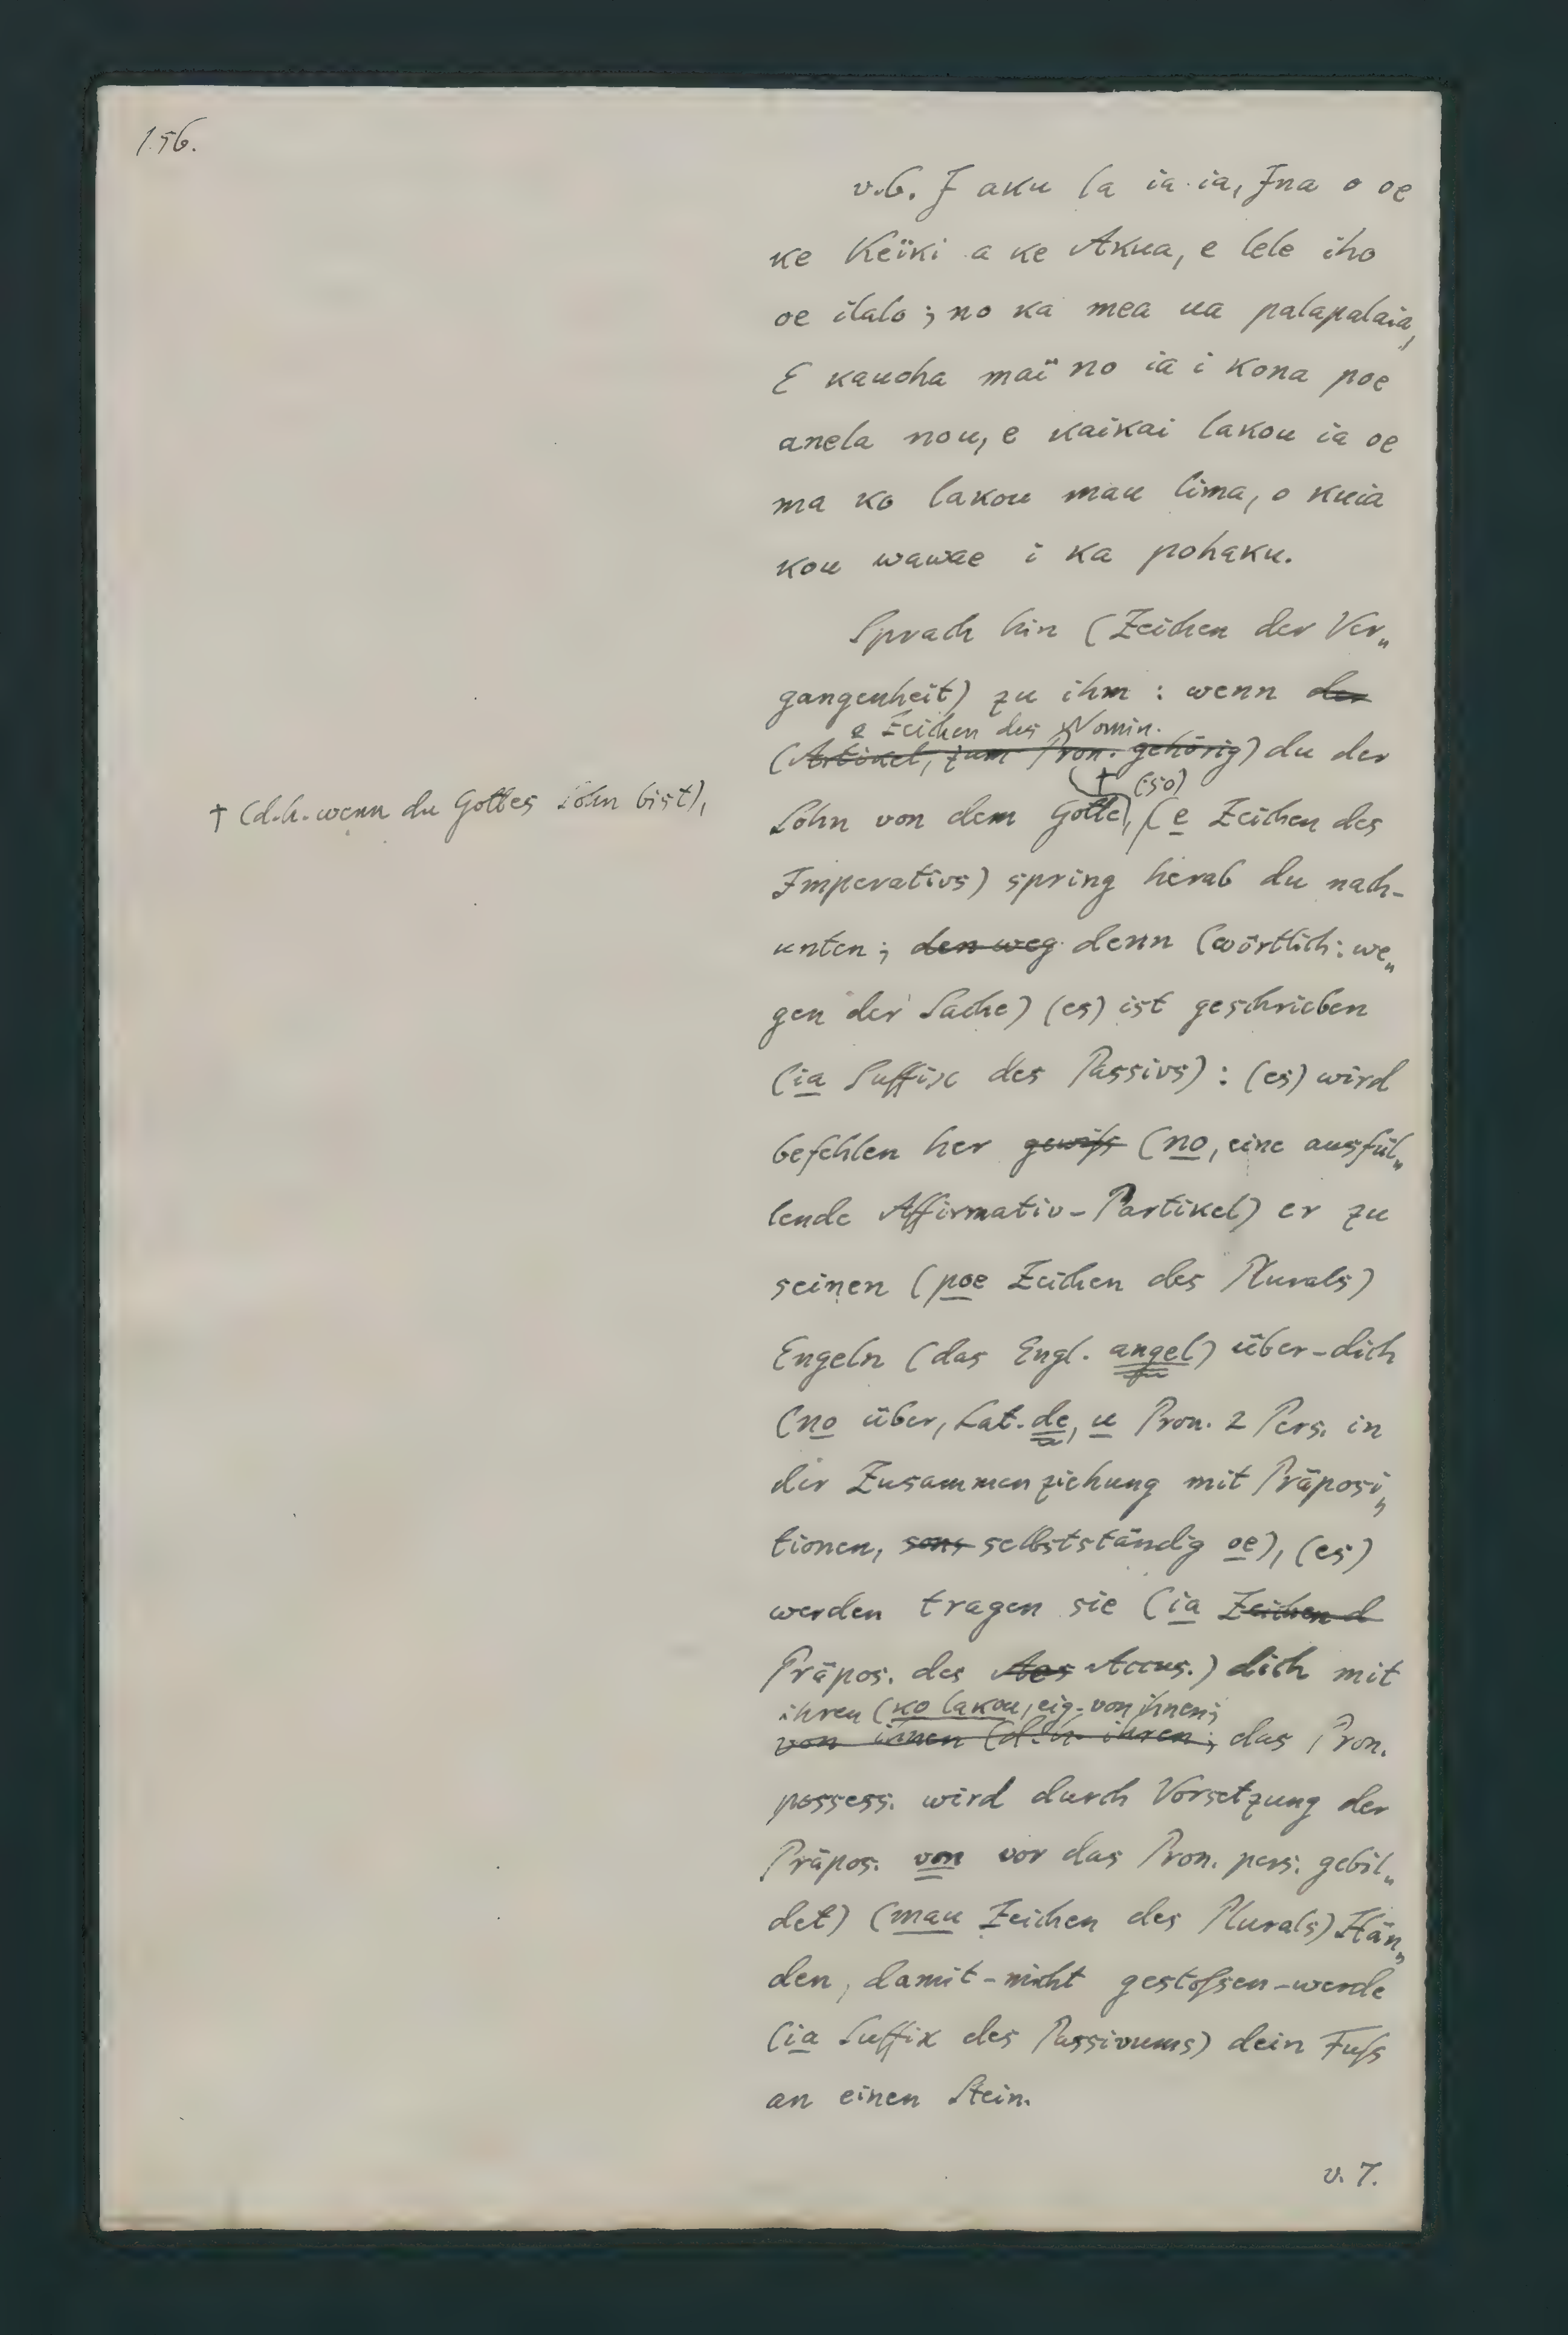 156.
v. 6. I aku la ia ia, Ina o oe
ke Keïki a ke Akua, e lele iho
oe ilalo; no ka mea ua palapalaia,
E kauoha maï no ia i kona poe
anela nou, e kaikai lakou ia oe
ma ko lakou mau lima, o kuia
kou wawae i ka pohaku.
Sprach hin (Zeichen der Ver„
gangenheit) zu ihm : wenn der
o Zeichen des Nomin.
(Artikel, zum Pron. gehörig) du der
† (so)
† (d. h. wenn du Gottes Sohn bist),
Sohn von dem Gotte, (e Zeichen des
Imperativs) spring herab du nach-
unten; den weg denn (wörtlich: we„
gen der Sache) (es) ist geschrieben
(ia Suffix des Passivs) : (es) wird
befehlen her gewiſs (no, eine ausfül„
lende Affirmativ-Partikel) er zu
seinen (poe Zeichen des Plurals)
Engeln (das Engl. angel) über-dich
(no über, Lat. de, u Pron. 2 Pers. in
der Zusammenziehung mit Präposi„
tionen, sons selbstständig oe), (es)
werden tragen sie (ia Zeichen d
Präpos. des Accus.) dich mit
ihren (ko lakou, eig. von ihnen;
von ihnen (d. h. ihren; das Pron.
possess. wird durch Vorsetzung der
Präpos. von vor das Pron. pers. gebil„
det) (mau Zeichen des Plurals) Hän„
den, damit-nicht gestoſsen-werde
(ia Suffix des Passivums) dein Fuſs
an einen Stein.
v. 7.